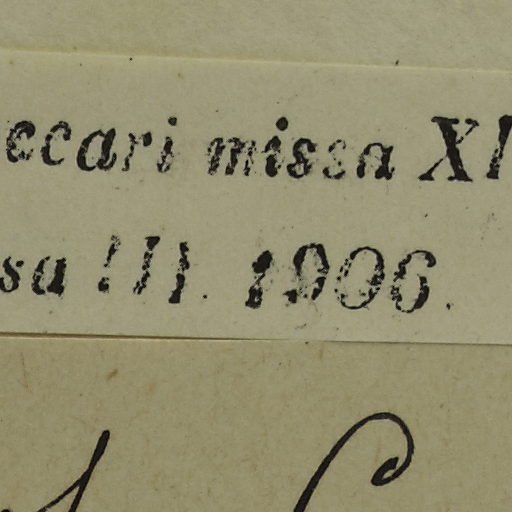 eccari missa XI
sa III. 1906.